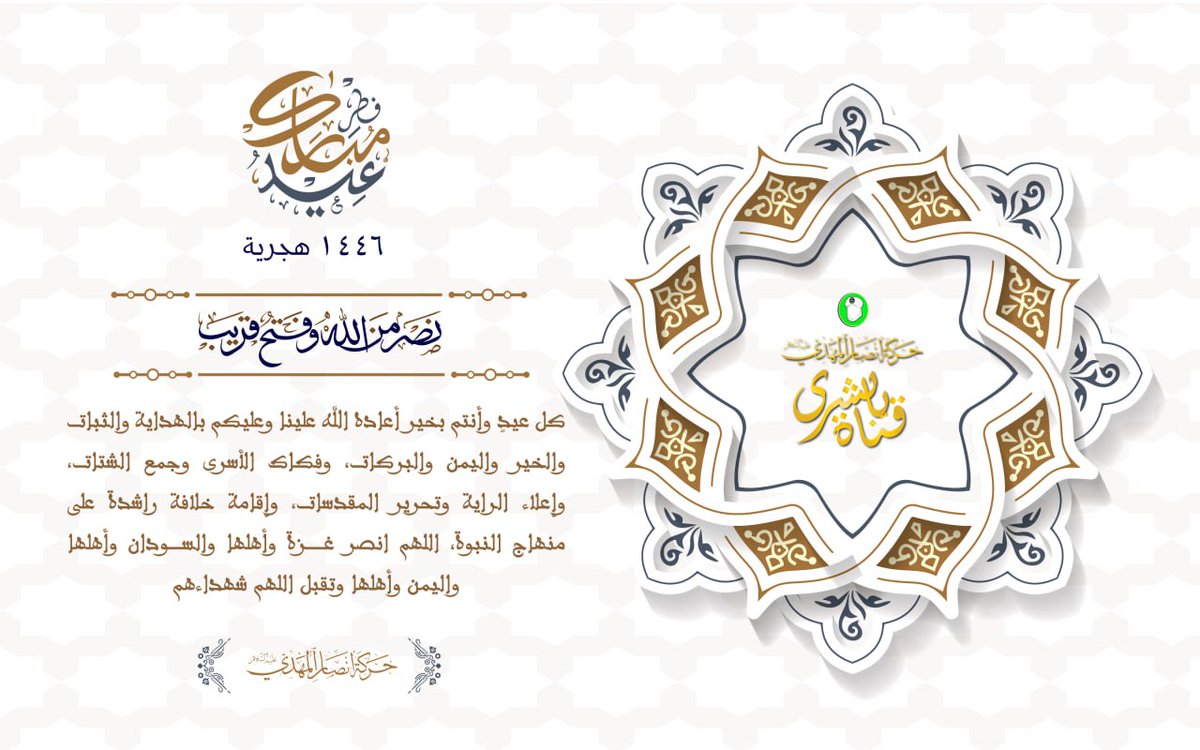 عيد فطر مبارك
١٤٤٦ هجرية
نصر من الله وفتح قريب
كل عيدٍ وأنتم بخير أعاده الله علينا وعليكم بالهداية والثبات
والخير واليمن والبركات، وفكاك الأسرى وجمع الشتات،
وإعلاء الراية وتحرير المقدسات، وإقامة خلافة راشدة على
منهاج النبوة، اللهم انصر غـزة وأهلها والسـودان وأهلها
واليمن وأهلها وتقبل اللهم شهداءهم
حركة أنصار المهدي عليه السلام
حركة أنصار المهدي
قناة البشرى